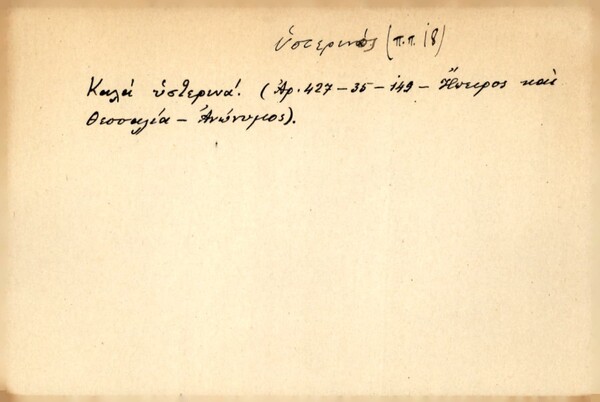 ὑστερινός (π.π. 18)
Καλά ὑστερινά! (Ἀρ. 427 – 35 – 149 – Ἤπειρος καὶ
Θεσσαλία – Ἀνώνυμος).